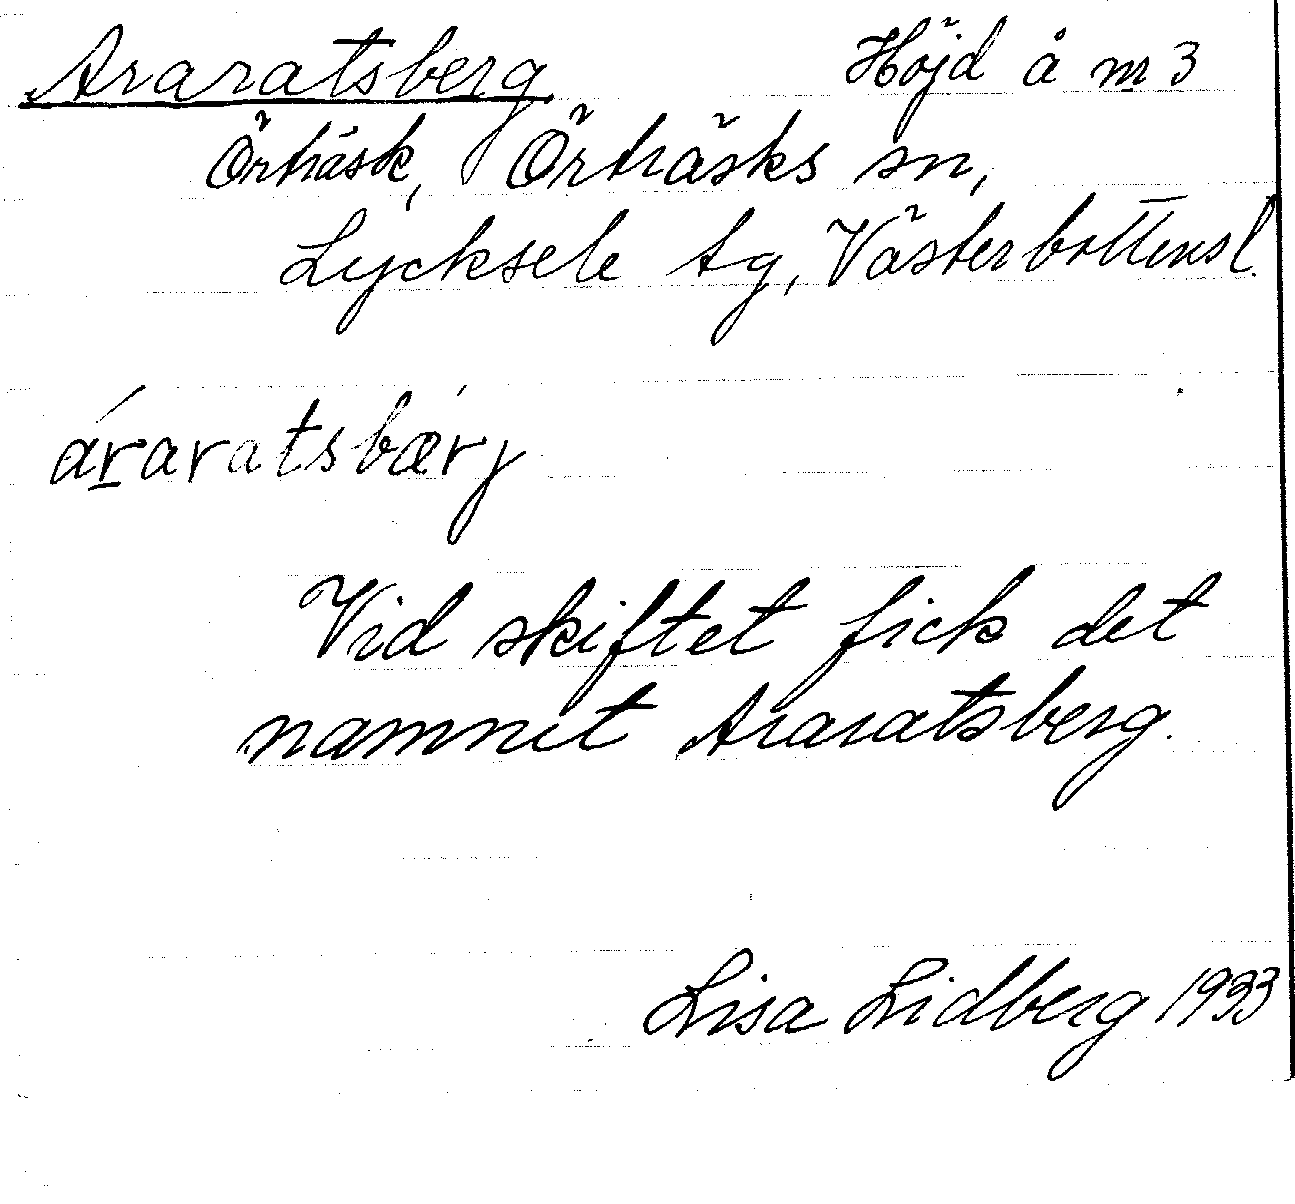 Araratsberg Höjd å nr 3
Örträsk, Örträsks sn,
Lycksele tg, Västerbottensl.
áraratsbærj
Vid skiftet fick det
namnet Araratsberg.
Lisa Lidberg 1933